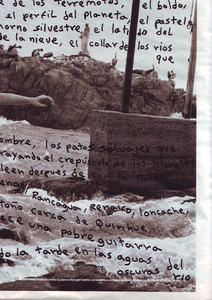 de los terremotos, el boldo,
el perfil del planeta, el pastel
horno silvestre, el latido del
de la nieve, el collar de los ríos
que
ombre, los patos salvajes que
rayando el crepúsculo de los
leen después de
Rancagua, Renaico, Loncoche,
toño cerca de Quirihue,
ece una pobre guitarra
do la tarde en las aguas
oscuras del
río